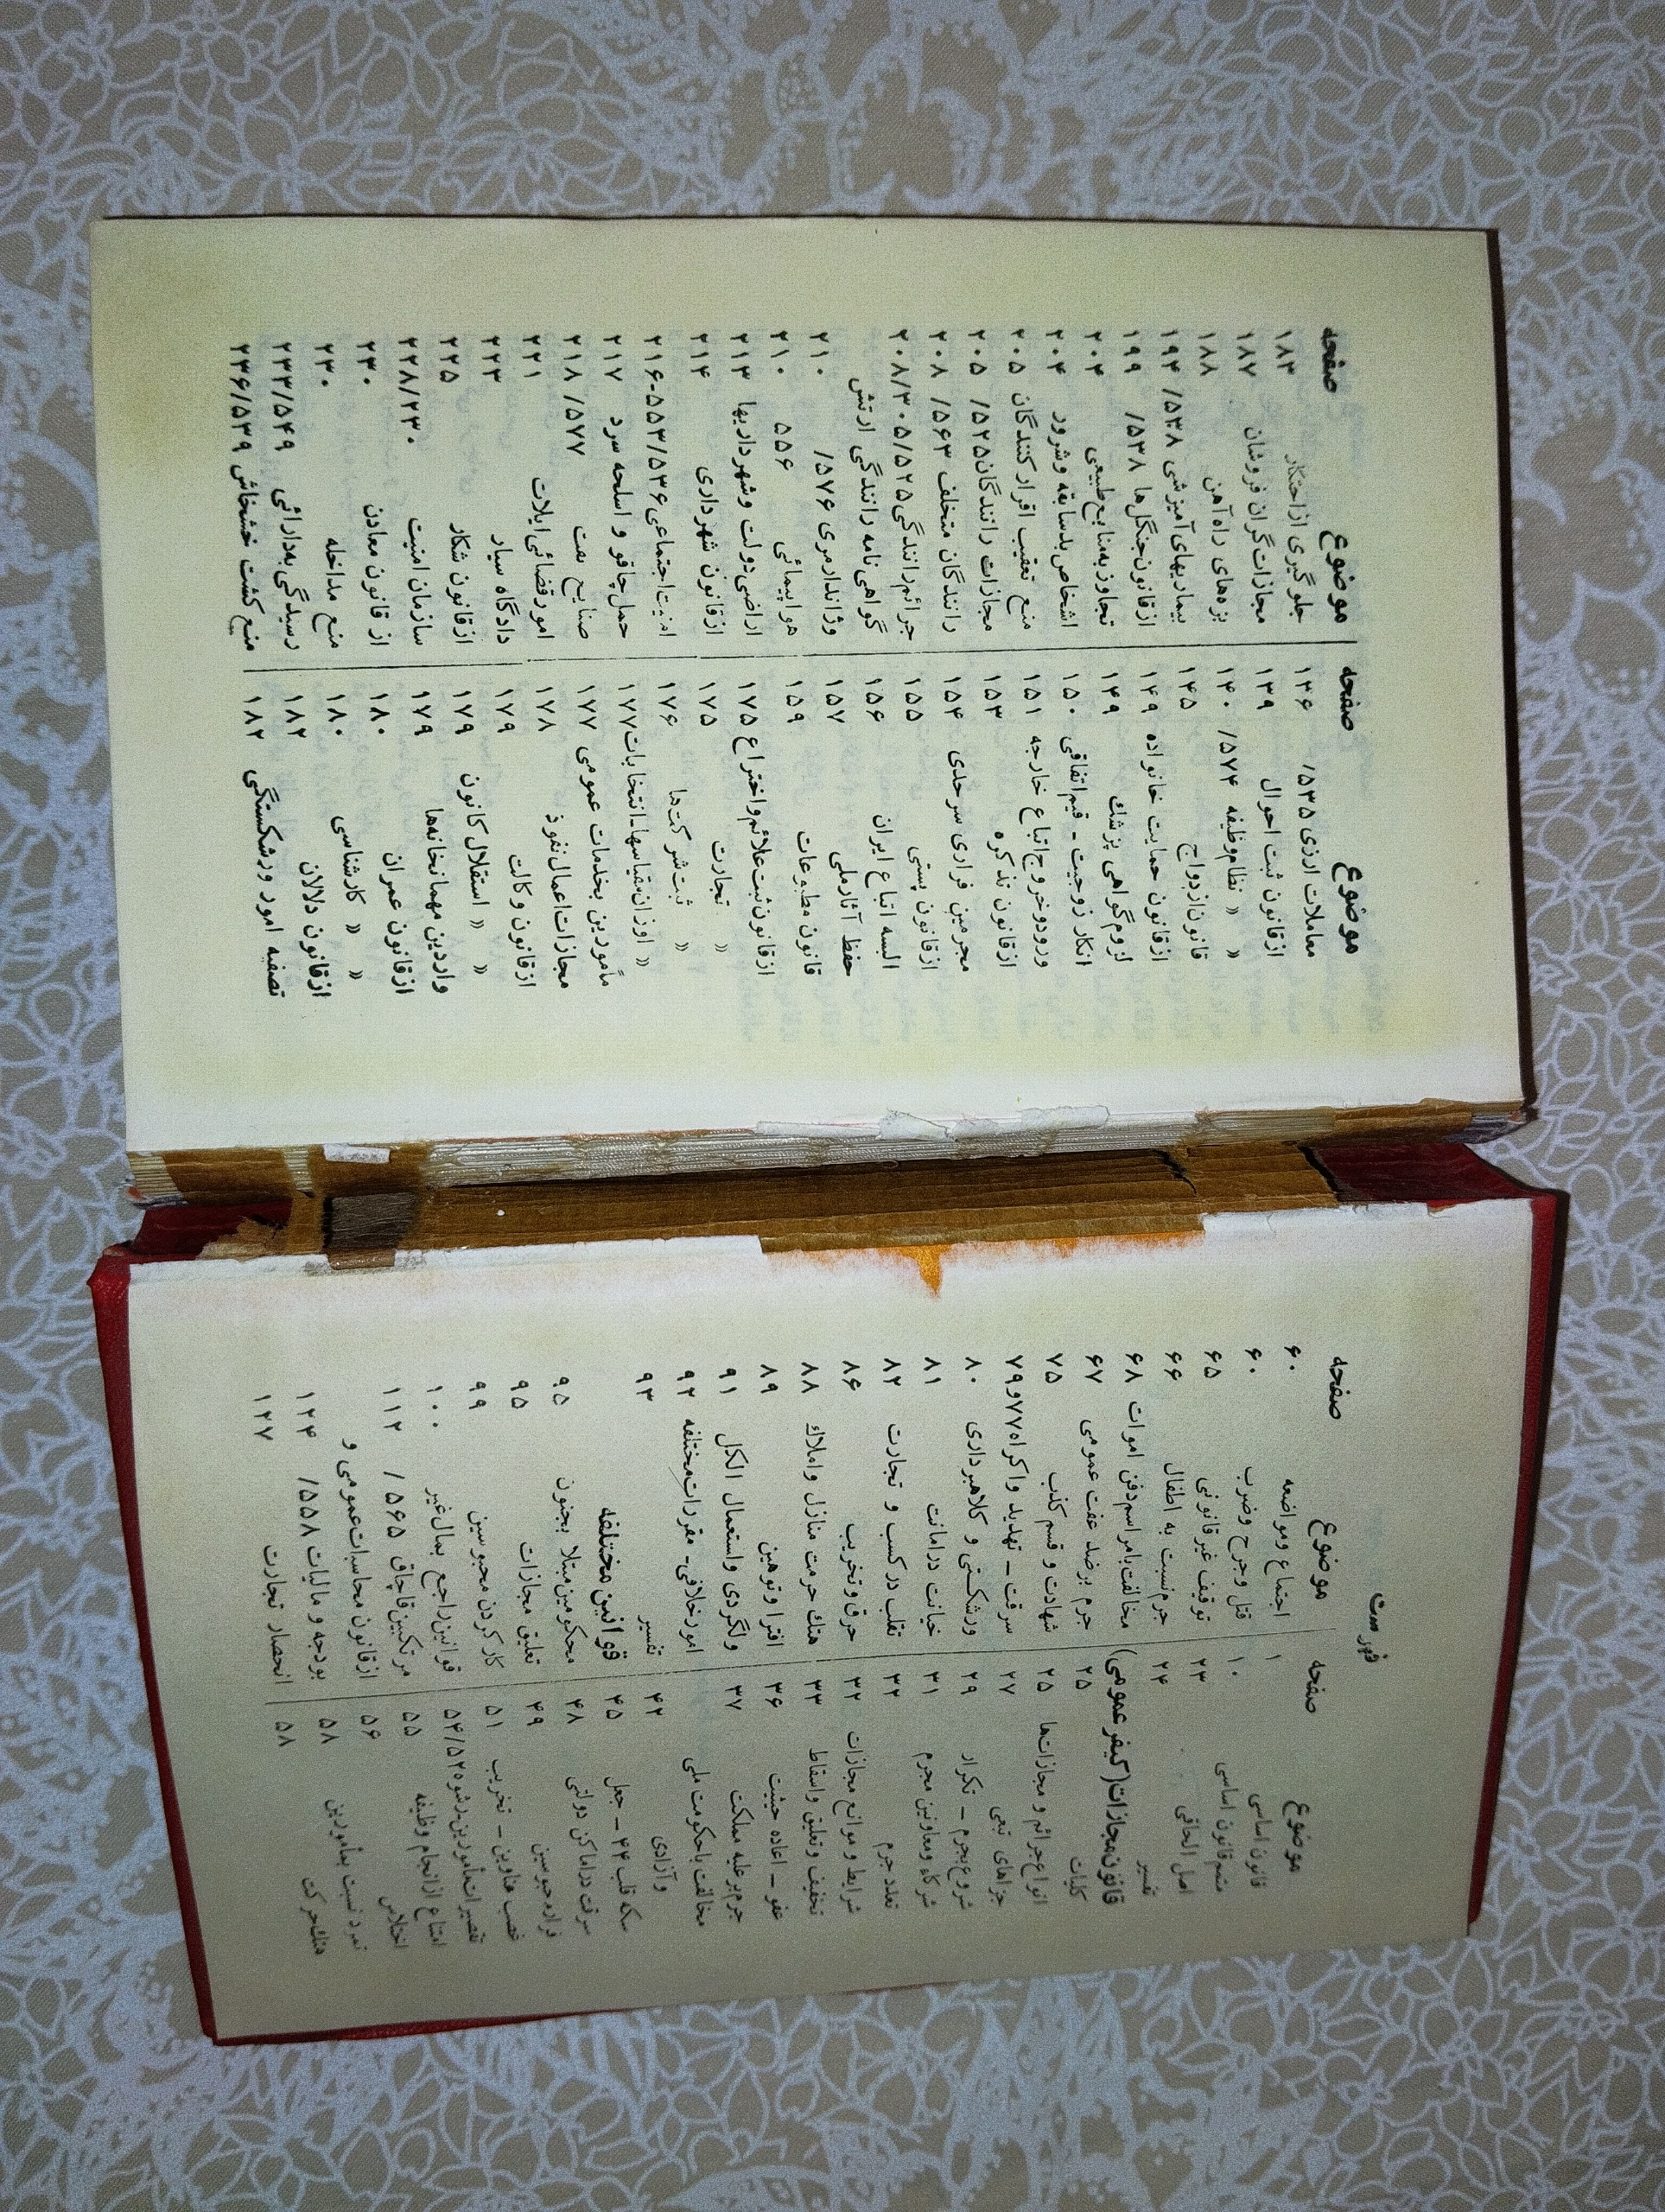 فهرست
موضوع صفحه
قانون اساسی ۱
متمم قانون اساسی ۱۰
اصل الحاقی ۲۳
تفسیر ۲۴
قانون مجازات (کیفر عمومی)
کلیات ۲۵
انواع جرائم و مجازات‌ها ۲۵
جزاهای تبعی ۲۷
شروع بجرم - تکرار ۲۹
شرکاء و معاونین مجرم ۳۱
تعدد جرم ۳۲
شرایط و موانع مجازات ۳۲
تخفیف و تعلیق و اسقاط ۳۳
عفو - اعاده حیثیت ۳۶
جرم بر علیه مملکت ۳۷
مخالفت با حکومت ملی
و آزادی ۴۲
سکه قلب ۴۴ - جعل ۴۵
سرقت در اماکن دولتی ۴۸
فرار محبوسین ۴۹
غصب عناوین - تخریب ۵۱
تقصیرات مأمورین-رشوه ۵۴/۵۲
امتناع از انجام وظیفه ۵۵
اختلاس ۵۶
تمرد نسبت بمأمورین ۵۸
هتك حرکت ۵۸
موضوع صفحه
اجتماع و مواضعه ۶۰
قتل و جرح و ضرب ۶۰
توقیف غیر قانونی ۶۵
جرم نسبت به اطفال ۶۶
مخالفت بامراسم دفن اموات ۶۸
جرم بر ضد عفت عمومی ۶۷
شهادت و قسم کذب ۷۵
سرقت - تهدید و اکراه ۷۷و۷۹
ورشکستی و کلاهبرداری ۸۰
خیانت در امانت ۸۱
تقلب در کسب و تجارت ۸۲
حرق و تخریب ۸۶
هتك حرمت منازل و املاك ۸۸
افترا و توهین ۸۹
ولگردی و استعمال الکل ۹۱
امور خلافی- مقررات مختلفه ۹۲
تفسیر ۹۳
قوانین مختلفه
محکومین مبتلا بجنون ۹۵
تعلیق مجازات ۹۵
کار کردن محبوسین ۹۹
قوانین راجع بمال غیر ۱۰۰
مرتکبین قاچاق ۵۶۵/ ۱۱۲
از قانون محاسبات عمومی و
بودجه و مالیات ۵۵۸/ ۱۲۴
انحصار تجارت ۱۲۷
موضوع صفحه
معاملات ارزی ۵۳۵/ ۱۳۶
از قانون ثبت احوال ۱۳۹
« « نظام وظیفه ۵۷۴/ ۱۴۰
قانون ازدواج ۱۴۵
از قانون حمایت خانواده ۱۴۹
لزوم گواهی پزشك ۱۴۹
انکار زوجیت - قیم اتفاقی ۱۵۰
ورود و خروج اتباع خارجه ۱۵۱
از قانون تذکره ۱۵۳
مجرمین فراری سرحدی ۱۵۴
از قانون پستی ۱۵۵
البسه اتباع ایران ۱۵۶
حفظ آثار ملی ۱۵۷
قانون مطبوعات ۱۵۹
از قانون ثبت علائم و اختراع ۱۷۵
« تجارت ۱۷۵
« ثبت شرکت‌ها ۱۷۶
« اوزان مقیاسها-انتخابات ۱۷۷
مأمورین بخدمات عمومی ۱۷۷
مجازات اعمال نفوذ ۱۷۸
از قانون وکالت ۱۷۹
« « استقلال کانون ۱۷۹
واردین مهمانخانه‌ها ۱۷۹
از قانون عمران ۱۸۰
« « کارشناسی ۱۸۰
از قانون دلالان ۱۸۲
تصفیه امور ورشکستگی ۱۸۲
موضوع صفحه
جلوگیری از احتکار ۱۸۳
مجازات گران فروشان ۱۸۷
بزه‌های راه آهن ۱۸۸
بیماریهای آمیزشی ۵۳۸/ ۱۹۴
از قانون جنگل‌ها ۵۳۸/ ۱۹۹
تجاوز به منابع طبیعی ۲۰۲
اشخاص بدسابقه و شرور ۲۰۴
منع تعقیب اقرار کنندگان ۲۰۵
مجازات رانندگان ۵۲۵/ ۲۰۵
رانندگان متخلف ۵۶۳/ ۲۰۸
جرائم رانندگی ۲۰۸/۳۰۵/۵۲۵
گواهی نامه رانندگی ارتش
وژاندارمری ۵۷۶/ ۲۱۰
هواپیمائی ۵۵۶ ۲۱۰
اراضی دولت و شهرداریها ۲۱۳
از قانون شهرداری ۲۱۴
امنیت اجتماعی ۲۱۶-۵۵۳/۵۳۶
حمل چاقو و اسلحه سرد ۲۱۷
صنایع نفت ۵۷۷/ ۲۱۸
امور قضائی ایلات ۲۲۱
دادگاه سیار ۲۲۳
از قانون شکار ۲۲۵
سازمان امنیت ۲۲۸/۲۳۰
از قانون معادن ۲۳۰
منع مداخله ۲۳۰
رسیدگی به دارائی ۲۳۳/۵۴۹
منع کشت خشخاش ۲۳۶/۵۳۹